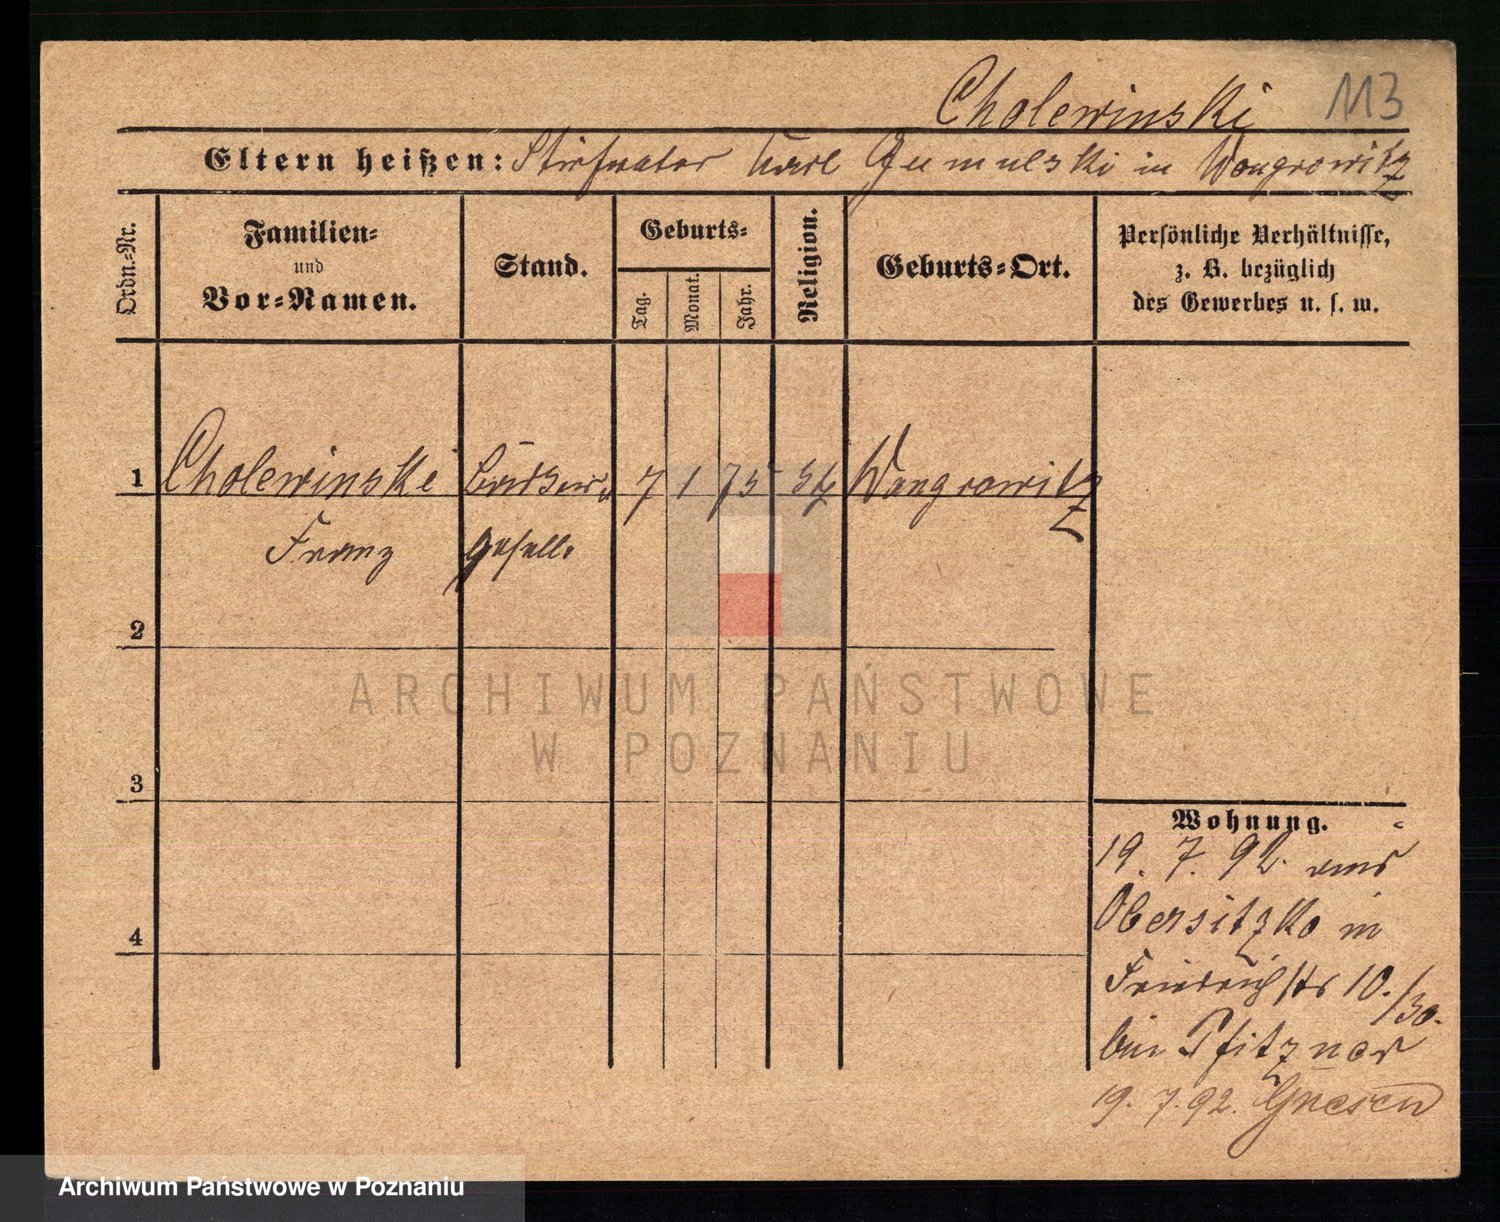 Cholewinski 113
Eltern heißen: Stiefvater Karl Gumulski in Wongrowitz
Ordn.-Nr.
Familien-
und
Vor-Namen.
Stand.
Geburts-
Tag.
Monat.
Jahr.
Religion.
Geburts-Ort.
Persönliche Verhältnisse,
z. B. bezüglich
des Gewerbes u. s. w.
1 Cholewinski 7 1 75 Wongrowitz
Franz geselle
2
3
4
Wohnung.
19. 7. 92. aus
Obersitzko in
Friedrichstr 10./30.
bei Pfitzner
19. 7. 92. Gnesen
ARCHIWUM PAŃSTWOWE
W POZNANIU
Archiwum Państwowe w Poznaniu